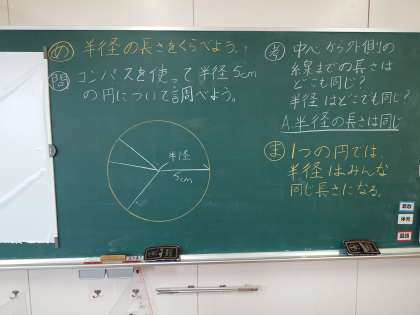 め 半径の長さをくらべよう。
問 コンパスを使って半径5cm
の円について調べよう。
半径
5cm
考 中心から外側の
線までの長さは
どこも同じ?
半径はどこでも同じ?
A.半径の長さは同じ
ま 1つの円では、
半径はみんな
同じ長さになる。
国語